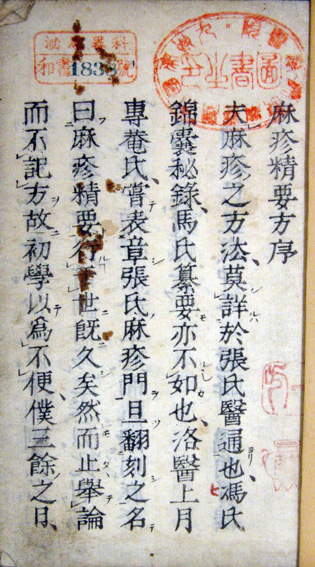 麻疹精要方序
夫麻疹之方法、莫詳於張氏醫通也、馮氏
錦囊秘錄、馬氏纂要亦不如也、洛醫上月
專菴氏、嘗表章張氏麻疹門且翻刻之名
曰麻疹精要行于世既久矣然而止舉論
而不記方故初學以爲不便、僕三餘之日、
和書183號